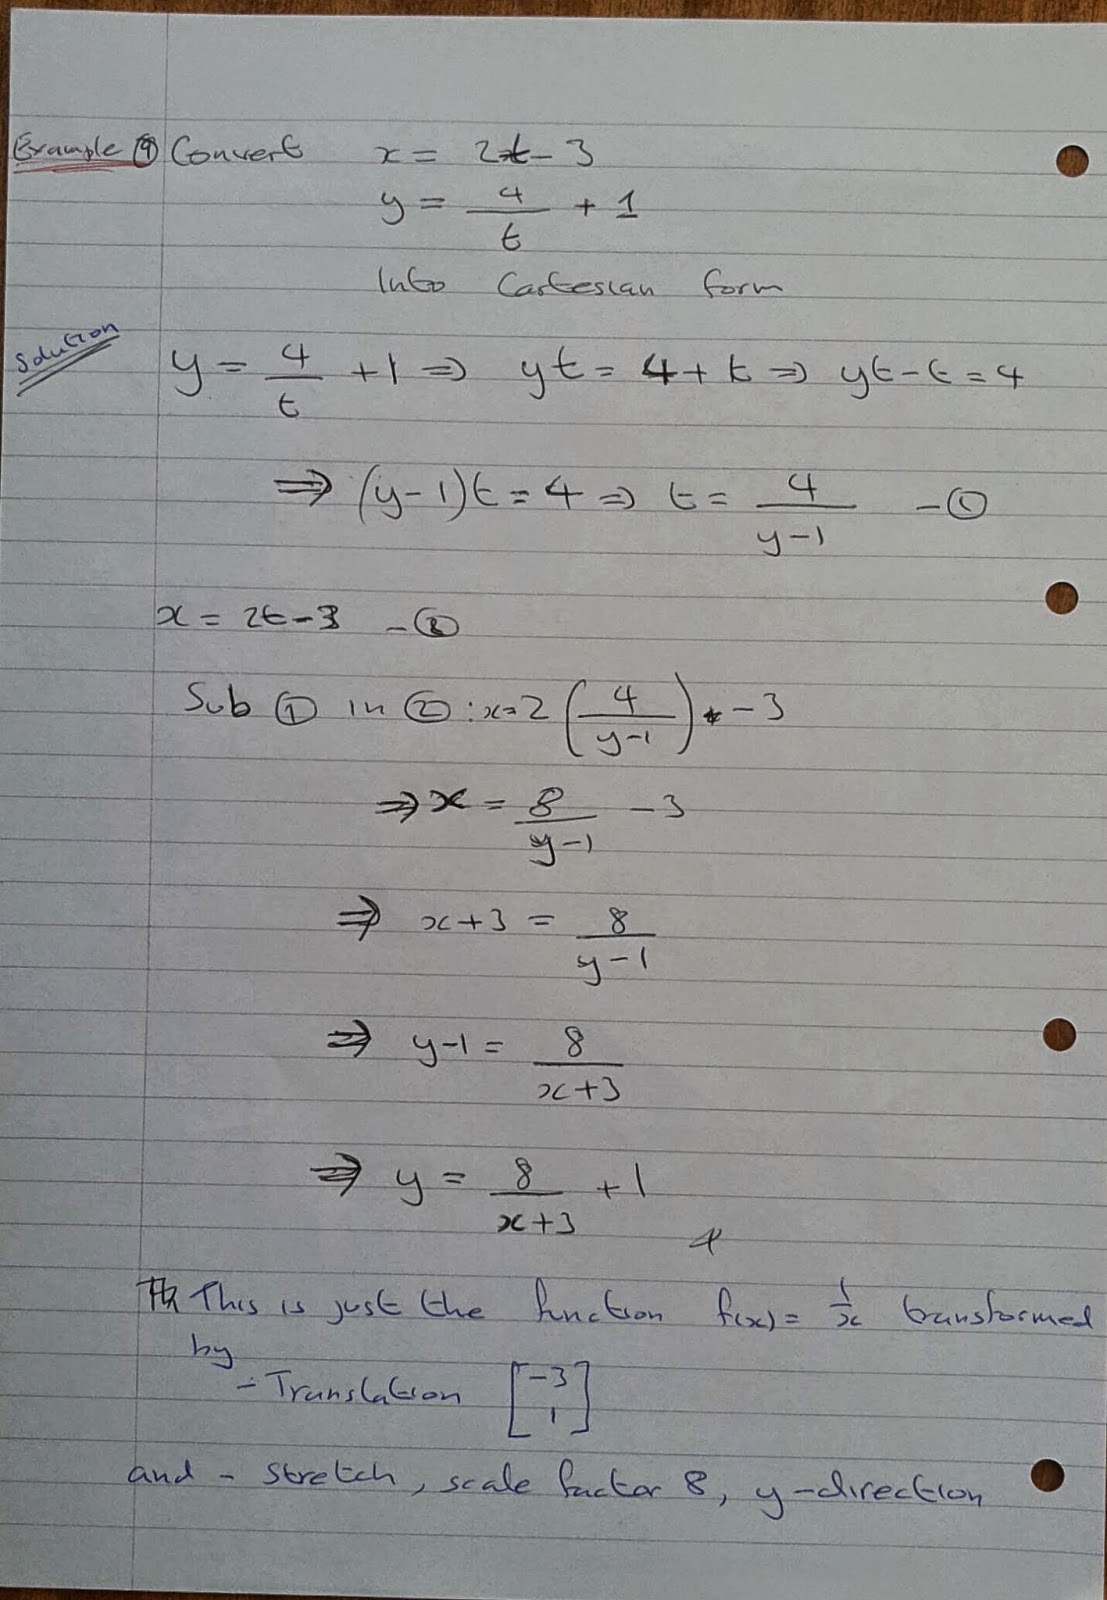 Example 9 Convert x = 2t - 3
y = 4/t + 1
Into Cartesian form
Solution
y = 4/t + 1 ⇒ yt = 4 + t ⇒ yt - t = 4
⇒ (y - 1)t = 4 ⇒ t = 4/(y-1) - ①
x = 2t - 3 - ②
Sub ① in ② : x = 2(4/(y-1)) - 3
⇒ x = 8/(y-1) - 3
⇒ x + 3 = 8/(y-1)
⇒ y - 1 = 8/(x+3)
⇒ y = 8/(x+3) + 1
This is just the function f(x) = 1/x transformed
by
- Translation [-3 1]
and - stretch, scale factor 8, y-direction